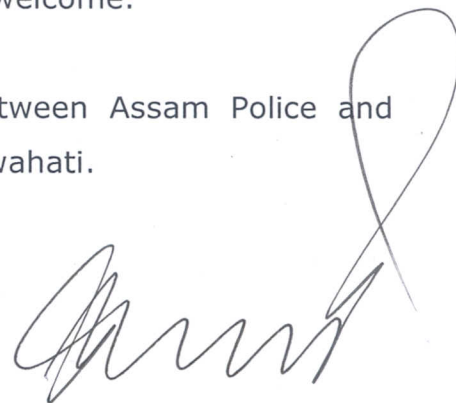 welcome.
tween Assam Police and
wahati.